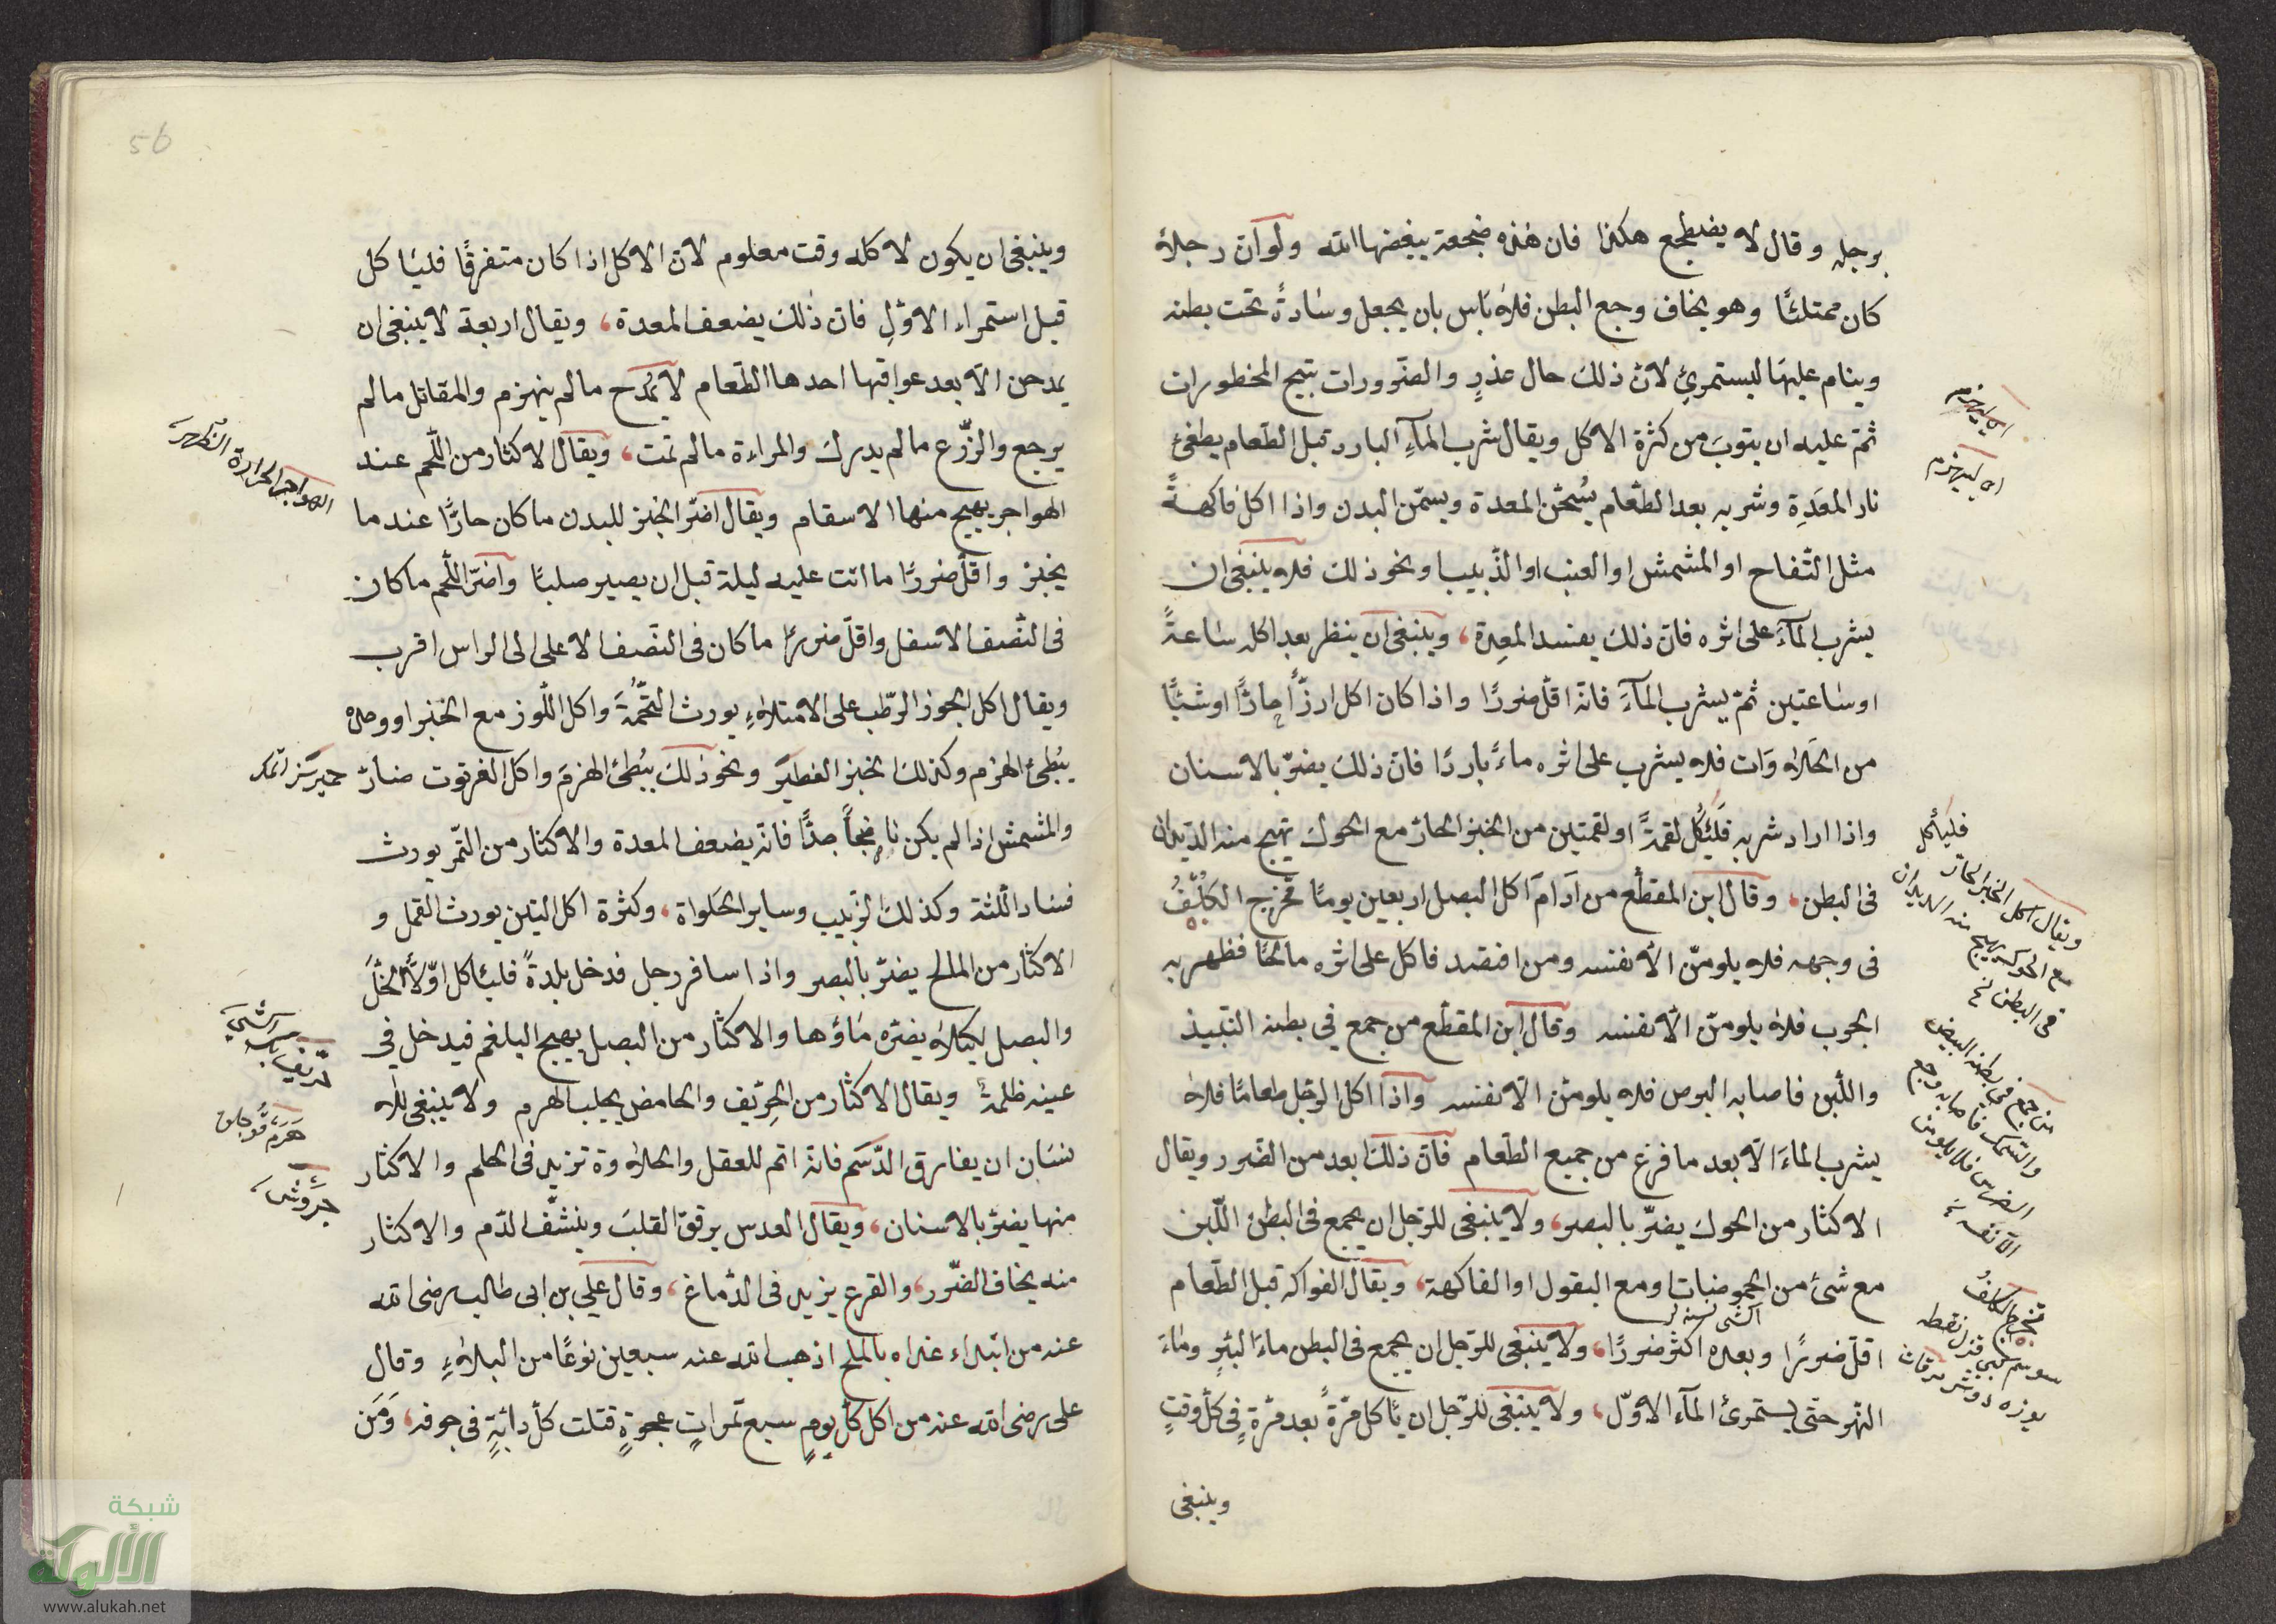 برجله وقال لا يضطجع هكذا فان هذه ضجعة يبغضها الله ولو ان رجلا
كان ممتلئًا وهو يخاف وجع البطن فلا بأس بان يجعل وسادةً تحت بطنه
وينام عليها ليستمرئ لان ذلك حال عذرٍ والضّرورات تبيح المحظورات
ثمّ عليه ان يتوبَ من كثرة الاكل ويقال شرب المآءِ البارد قبل الطّعام يطفئ
نار المعَدِة وشربه بعد الطّعام يُسخّن المعدة ويسمّن البدن واذا اكل فاكهةً
مثل التّفاح او المشمش او العنب او الذّبيب ونحو ذلك فلا ينبغى ان
يشرب المآءَ على اثره فانّ ذلك يفسد المعِدة، وينبغى ان ينظر بعد اكله ساعةً
او ساعتين ثمّ يشرب المآءَ فانّه اقلّ ضررًا واذا كان اكل ارزًّا حارًّا او شيئًا
من الحَلاوَات فلا يشرب على اثره ماءً باردًا فانّ ذلك يضرّ بالاسنان
واذا اراد شربه فَليأكُل لقمةً او لقمتين من الخبز الحارّ مع الحوك تهيج منه الدّيدان
فى البطن، وقال ابن المقفّع من اَدامَ اكل البصل اربعين يومًا تخرج الكَلَفُ
فى وجهه فلا يلومنّ الّا نفسه ومن افتصد فاكل على اثره مالحًا فظهر به
الجرب فلا يلومنّ الّا نفسه وقال ابن المقفّع من جمع في بطنه النّبيذ
واللّبن فاصابه البرص فلا يلومنّ الّا نفسه واذا اكل الرّجل طعامًا فلا
يشرب الماءَ الّا بعد ما فرغ من جميع الطّعام فانّ ذلك ابعد من الضّرر ويقال
الاكثار من الحوك يضرّ بالبصر، ولا ينبغى للرّجل ان يجمع فى البطن اللّبن
مع شئ من الحموضات او مع البقول او الفاكهة، ويقال الفواكه قبل الطّعام
اقلّ ضررًا وبعده اكثر ضررًا، ولا ينبغى للرّجل ان يجمع فى البطن ماءَ البئرِ وماءَ
النّهر حتى يستمرئ المآء الاوّل، ولا ينبغى للرّجل ان يأكل مرّةً بعد مرّةٍ فى كلّ وقتٍ
وينبغى
اى ليهزم
اى ليهزم
فليأكل
ويقال اكل الخبز الحارّ
مع الحوك يهيج منه الديدان
فى البطن نخ
من جمع فى بطنه البيض
والسّمك فاصابه وجع
الضرس فلا يلومنّ
الّا نفسه نخ
تخرج الكلفُ
56
وينبغى ان يكون لاكله وقت معلوم لانّ الاكل اذا كان متفرقًا فليأكل
قبل استمراء الاوّلِ فانّ ذلك يضعف المعدة، ويقال اربعة لا ينبغى ان
يمدحن الّا بعد عواقبها احدها الطّعام لا يُمدح ما لم ينهزم والمقاتل ما لم
يرجع والزّرع ما لم يدرك والمراءة ما لم تمت، ويقال الاكثار من اللّحم عند
الهواجر يهيج منها الاسقام ويقال اضرّ الخبز للبدن ما كان حارًّا عند ما
يخبز واقلّ ضررًا ما اتت عليه ليلة قبل ان يصير صلبًا واضرّ اللّحم ما كان
فى النّصف الاسفل واقلّ ضررًا ما كان فى النّصف الاعلى الى الراس اقرب
ويقال اكل الجوز الرّطب على الامتلاءِ يورث التُّخَمَةَ واكل اللّوز مع الخبز او وحده
يبُطئ الهزم وكذلك الخبز الفطير ونحو ذلك يبُطئ الهزمَ واكل الفرتوت ضارّ
والمشمش اذا لم يكن ناضِجاً جدًّا فانّه يضعف المعدة والاكثار من التّمر يورث
فساد اللّثة وكذلك الزّبيب وساير الحَلواة، وكثرة اكل التين يورث القمل و
الاكثار من المالح يضرّ بالبصر واذا سافر رجل فدخل بلدةً فليأكل اوّلًا الخَلَّ
والبصل لكيلا يضرّه ماؤها والاكثار من البصل يهيج البلغم فيدخل في
عينه ظلمةً ويقال الاكثار من الحِرّيف والحامض يجلب الهرم ولا ينبغى للا
نسان ان يفارق الدّسَم فانّه اتم للعقل والحلاوة تزيد فى الحلم والاكثار
منها يضرّ بالاسنان، ويقال العدس يرقق القلبَ وينشّف الدّم والاكثار
منه يخاف الضّرر، والقرع يزيد فى الدّماغ، وقال علي بن ابى طالب رضى الله
عنه من ابتداء غداه بالملح اذهب الله عنه سبعين نوعًا من البلاءِ وقال
على رضى الله عنه من اكل كلّ يومٍ سبع تمراتٍ عجوةٍ قتلت كلّ دابّةٍ فى جوفه، وَمَن
الهواجر الحرارة الظهر
شبكة
الألوكة
www.alukah.net